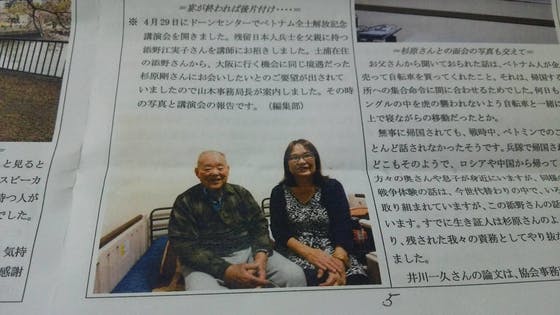 ＝宴が終われば後片付け・・・・＝
※ 4月29日にドーンセンターでベトナム全土解放記念
講演会を開きました。残留日本人兵士を父親に持つ
添野江実子さんを講師にお招きしました。土浦在住
の添野さんから、大阪に行く機会に同じ境遇だった
杉原剛さんにお会いしたいとのご要望が出されて
いましたので山本事務局長が案内しました。その時
の写真と講演会の報告です。（編集部）
と見ると
スピーカ
持つ人が
でした。
気持
感謝
＝杉原さんとの面会の写真も交えて＝
お父さんから聞いておられた話は、ベトナム人が全
売って自転車を買ってくれたこと。それは、帰国す
所への集合命令に間に合わせるためでした。何日も
ングルの中を虎の襲われないよう自転車と一緒に
上で寝ながらの移動だったとか。
無事に帰国されても、戦時中、ベトミンでの
とんど話されなかったそうです。兵隊で帰国さ
どこもそのようで、ロシアや中国から帰って
方々の奥さんや息子が身近にいますが、同様
戦争体験の話は、今世代替わりの中で、い
取り組まれていますが、この添野さんの話
います。すでに生き証人は杉原さんのみ
り、残された我々の責務としてやり抜
ました。
井川一久さんの論文は、協会事務
5